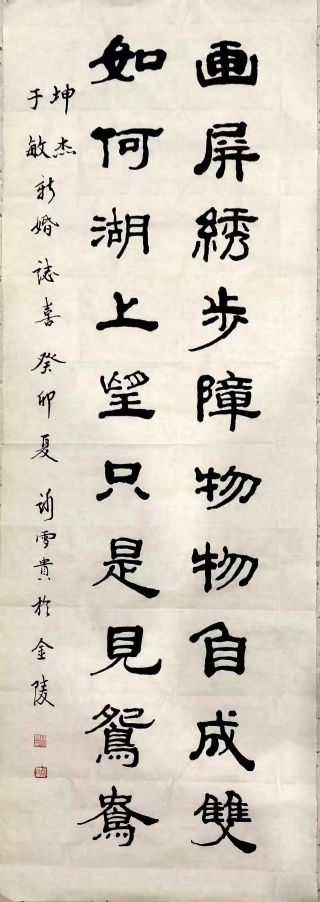 画屏綉步障物物自成雙
如何湖上望只是見鴛鴦
坤杰
于敏新婚誌喜癸卯夏雪貴於金陵